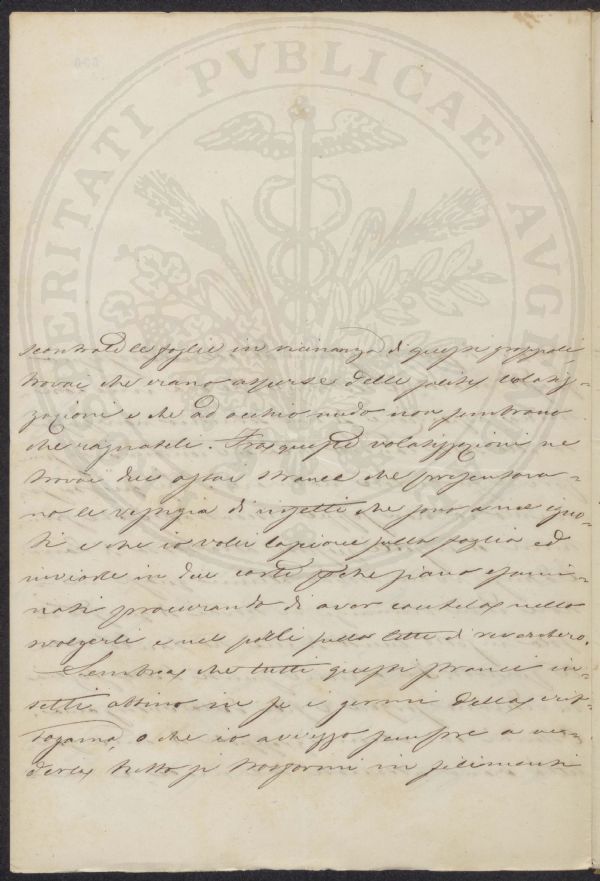 PROSPERITATI PVBLICAE AVGENDAE
scontrate le foglie in vicinanza di questi grappoli
trovai che erano asperse delle solite volatiz-
zazioni e che ad occhio nudo non sembrano
che ragnateli. Fra queste volatizzazioni ne
trovai due assai strane che presentava-
no le vestigia di insetti che sono a me igno-
ti e che io volli lasciare sulla foglia ed
inviarle in due carte perché siano esami-
nati procurando di aver cautela nello
svolgerli e nel porli sulla lente di riverbero.
Sembra che tutti questi strani in-
setti abbino in se i germi della crit-
togama, o che io avvezzo sempre a ve-
derla tutto si trasformi in filamenti